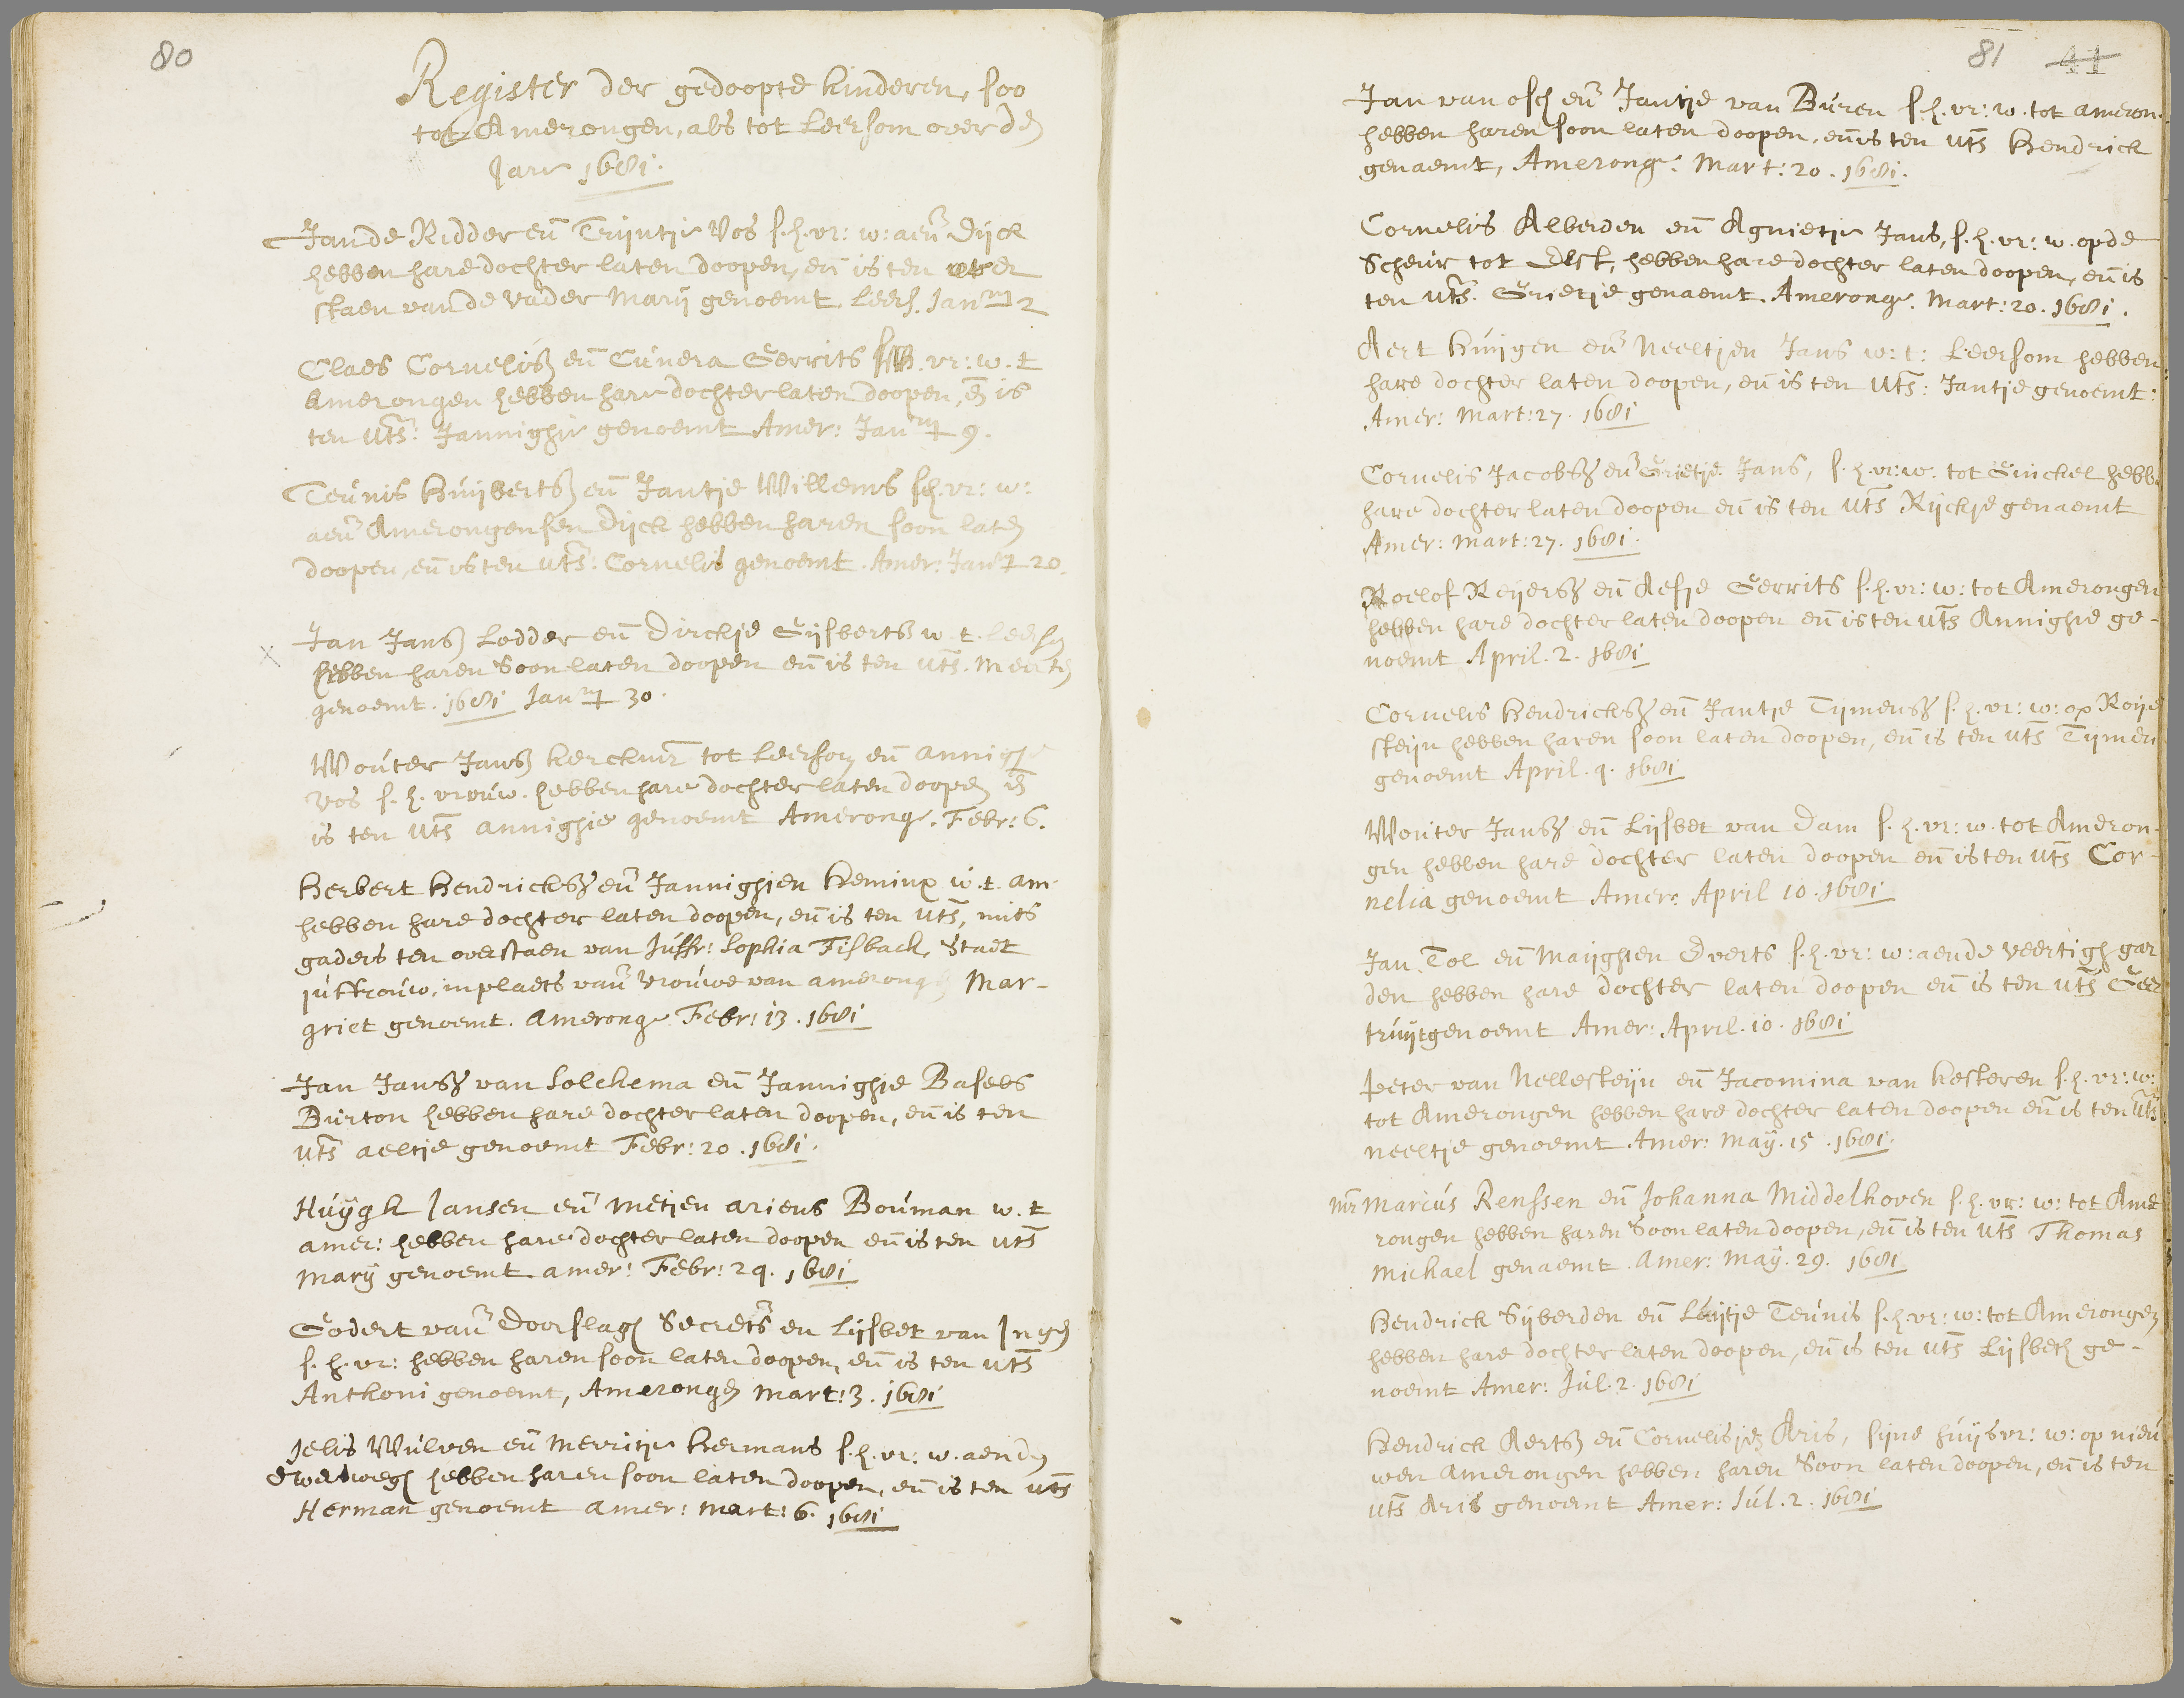 80
Register der gedoopte kinderen, soo
tot Amerongen, als tot Leersom over de
Jare 1681.
Jan de Ridder en Trijntje Vos s.h.vr: w: aen Dijck
hebben hare dochter laten doopen, en is ten
staen van de vader Marij genoemt. Leers. Jan 2
Claes Cornelisz en Cunera Gerrits vr: w. t
Amerongen hebben hare dochter laten doopen, en is
ten uts: Jannighie genoemt Amer: Jan 9.
Teunis Huijbertsz en Jantje Willems s.h.vr: w:
aen Amerongensen Dijck hebben haren soon laten
doopen, en is ten uts: Cornelis genoemt. Amer: Jan 20.
x Jan Jansz Lodder en Dirckje Gijsbertsz w. t. Leers
hebben haren Soon laten doopen en is ten uts. Merten
genoemt. 1681 Jan 30.
Wouter Jansz kerckmr tot Leersom en Annigje
Vos s. h. vrouw. hebben hare dochter laten doopen en
is ten uts annighie genoemt Amerong. Febr: 6.
Herbert Hendricksz en Jannighien Heminx w. t. am.
hebben hare dochter laten doopen, en is ten uts, mits
gaders ten overstaen van Juffr: Sophia Fisback, Stadt
juffrouw, in plaets van Vrouwe van amerong Mar-
griet genoemt. amerong Febr: 13. 1681
Jan Jansz van Solckema en Jannighie Basels
Burton hebben hare dochter laten doopen, en is ten
uts aeltje genoemt Febr: 20. 1681.
Huijgh Jansen en metjen ariens Bouman w. t
amer: hebben hare dochter laten doopen en is ten uts
Marij genoemt. amer: Febr: 29. 1681
Godert van Doorslagh Secrets en Lijsbet van Inge
s. h. vr: hebben haren soon laten doopen, en is ten uts
Anthoni genoemt, Amerongen Mart: 3. 1681
Jelis Wulven en Merritje Hermans s.h.vr: w. aende
dwersweg hebben haren soon laten doopen, en is ten uts
Herman genoemt amer: Mart: 6. 1681
81 41
Jan van Osch en Jantje van Buren s.h.vr: w. tot ameron.
hebben haren soon laten doopen, en is ten uts Hendrick
genaemt, Amerong. Mart: 20. 1681.
Cornelis Alberden en Agnietje Jans, s.h.vr: w. op de
Scheur tot Elst, hebben hare dochter laten doopen, en is
ten uts. Grietje genaemt. Amerong. Mart: 20. 1681.
Aert Huijgen en Neeltjen Jans w: t: Leersom hebben
hare dochter laten doopen, en is ten uts: Jantje genoemt:
Amer: Mart: 27. 1681
Cornelis Jacobsz en Grietje Jans, s.h.vr: w. tot Ginckel hebb
hare dochter laten doopen en is ten uts Rijckje genaemt
Amer: Mart: 27. 1681.
Roelof Reijersz en Aefje Gerrits s.h.vr: w: tot Amerongen
hebben hare dochter laten doopen en is ten uts Annighie ge-
noemt April. 2. 1681
Cornelis Hendricksz en Jantje Tijmensz s.h.vr: w: op Roije
steijn hebben haren soon laten doopen, en is ten uts Tijmen
genoemt April. 9. 1681
Wouter Jansz en Lijsbet van Dam s.h.vr: w. tot Ameron-
gen hebben hare dochter laten doopen en is ten uts Cor-
nelia genoemt Amer: April 10. 1681
Jan Tol en Maijghien Everts s.h.vr: w: aende veertigh gar
den hebben hare dochter laten doopen en is ten uts Geer
truijt genoemt Amer: April. 10. 1681
Peter van Nellesteijn en Jacomina van Kesteren s.h.vr: w:
tot Amerongen hebben hare dochter laten doopen en is ten uts
Neeltje genoemt. Amer: Maij. 15. 1681.
Mr Marius Renssen en Johanna Middelhoven s.h.vr: w: tot Ame
rongen hebben haren Soon laten doopen, en is ten uts Thomas
Michael genaemt. Amer: Maij. 29. 1681
Hendrick Sijberden en Luijtje Teunis s.h.vr: w: tot Amerongen
hebben hare dochter laten doopen, en is ten uts Lijsbeth ge-
noemt Amer: Jul. 2. 1681
Hendrick Aertsz en Cornelisje Aris, sijne huijsvr: w: op nieu
wen Amerongen hebben haren Soon laten doopen, en is ten
uts Aris genoemt Amer: Jul. 2. 1681